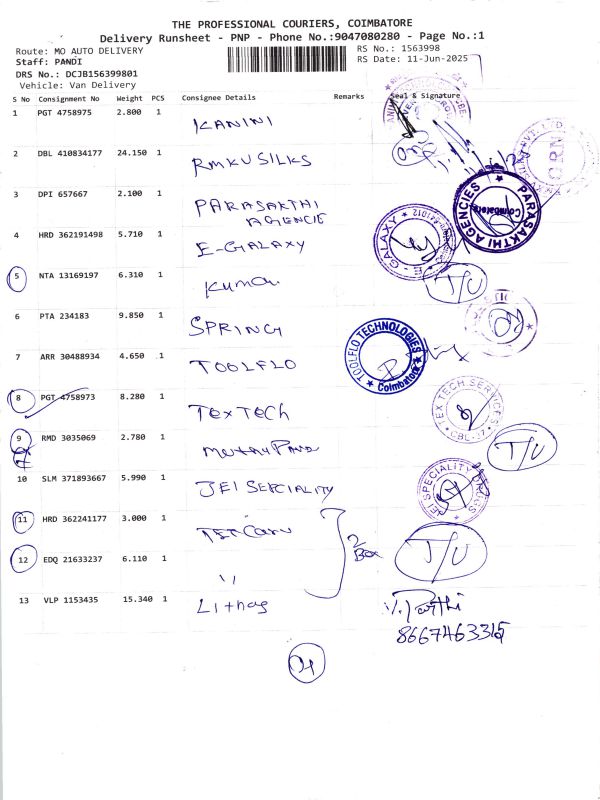 THE PROFESSIONAL COURIERS, COIMBATORE
Delivery Runsheet - PNP - Phone No.:9047080280 - Page No.:1
Route: MO AUTO DELIVERY
RS No.: 1563998
Staff: PANDI
RS Date: 11-Jun-2025
DRS No.: DCJB156399801
Vehicle: Van Delivery
S No Consignment No Weight PCS Consignee Details Remarks Seal & Signature
1 PGT 4758975 2.800 1 KANINI
2 DBL 410834177 24.150 1 RMKV SILKS
3 DPI 657667 2.100 1 PARASAKTHI
AGENCIE
PARASAKTHI AGENCIES
Coimbatore
4 HRD 362191498 5.710 1 E-GALAXY
E - GALAXY
5 NTA 13169197 6.310 1 Kumar
T/U
6 PTA 234183 9.850 1 SPRING
7 ARR 30488934 4.650 1 TOOLFLO
TOOLFLO TECHNOLOGIES
Coimbatore
8 PGT 4758973 8.280 1 TexTech
TEX TECH SERVICES
CBE-37
9 RMD 3035069 2.780 1
T/U
10 SLM 371893667 5.990 1 JEI SERCIALITY
JEI SPECIALITY
11 HRD 362241177 3.000 1
2 Box
T/U
12 EDQ 21633237 6.110 1 "
13 VLP 1153435 15.340 1 Lithas
V. Parthi
8667463315
04